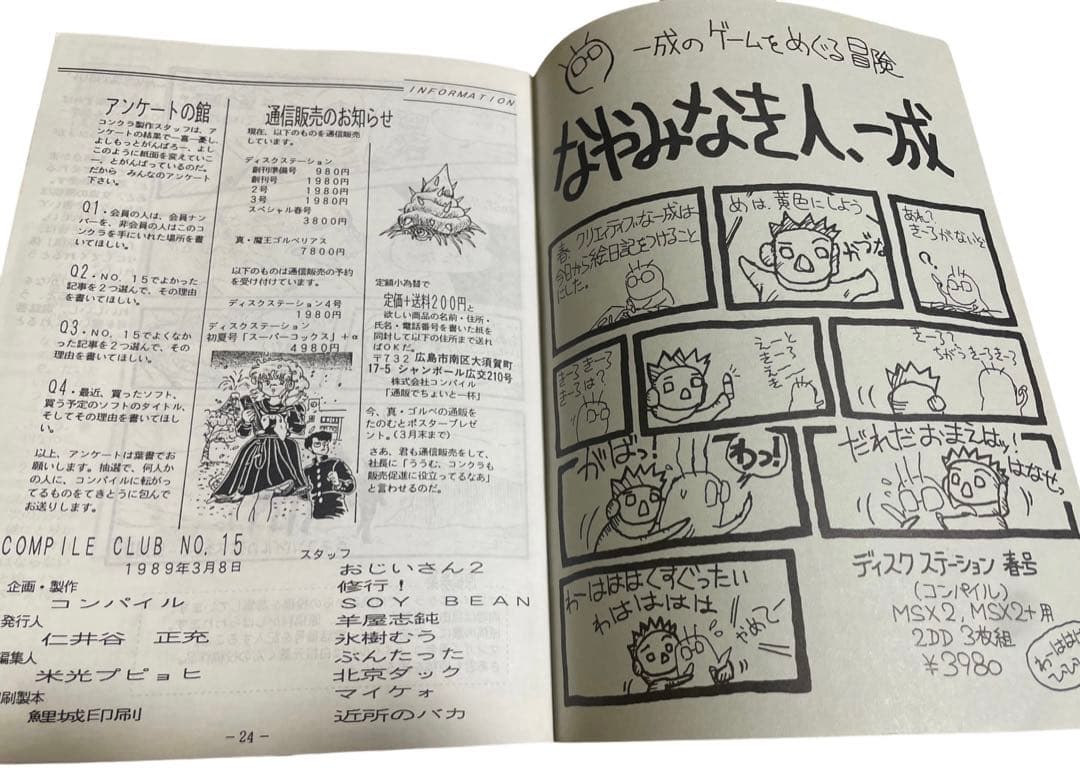 INFORMATION
アンケートの館
コンクラ製作スタッフは、ア
ンケートの結果で一喜一憂し、
よしもっとがんばろー、よし
このように紙面を変えていこ
ー、とがんばっているのだ。
だから　みんなのアンケート
下さい。
Q1・会員の人は、会員ナン
バーを、非会員の人はこのコ
ンクラを手にいれた場所を書
いてほしい。
Q2・NO. 15でよかった
記事を2つ選んで、その理由
を書いてほしい。
Q3・NO. 15でよくなか
った記事を2つ選んで、その
理由を書いてほしい。
Q4・最近、買ったソフト、
買う予定のソフトのタイトル、
そしてその理由を書いてほし
い。
以上、アンケートは葉書でお
願いします。抽選で、何人か
の人に、コンパイルに転がっ
てるものをてきとうに包んで
お送りします。
通信販売のお知らせ
現在、以下のものを通信販売
しています。
ディスクステーション
創刊準備号　980円
創刊号　1980円
2号　1980円
3号　1980円
スペシャル春号
3800円
真・魔王ゴルベリアス
7800円
以下のものは通信販売の予約
を受け付けています。
ディスクステーション4号
1980円
ディスクステーション
初夏号「スーパーコックス」+α
4980円
定額小為替で
定価+送料200円と
欲しい商品の名前・住所・
氏名・電話番号を書いた紙を
同封して以下の住所まで送れ
ばOKだ。
〒732 広島市南区大須賀町
17-5 シャンボール広交210号
株式会社コンパイル
「通販でちょいと一杯」
今、真・ゴルベの通販を
たのむとポスタープレゼ
ント。(3月末まで)
さあ、君も通信販売をして、
社長に「ううむ、コンクラも
販売促進に役立ってるなあ」
と言わせるのだ。
COMPILE CLUB NO. 15
1989年3月8日
企画・製作
コンパイル
発行人
仁井谷　正充
編集人
米光プピョヒ
印刷製本
鯉城印刷
スタッフ
おじいさん2
修行！
SOY BEAN
羊屋志鈍
氷樹むう
ぶんたった
北京ダック
マイケォ
近所のバカ
-24-
一成のゲームをめぐる冒険
なやみなき人、一成
春、クリエイティブな一成は
今日から絵日記をつけること
にした。
めは、黄色にしよう
かづな
あれ?
きーろがないぞ
?
きーろきーろ
きーろは?
えーと
きーろ
えき
きーろ?
ちがうきーろきーろ
がばっ!
わっ!
だれだおまえはッ!
はなせっ
わーはははくすぐったい
わはははは
やめてー
ディスクステーション 春号
(コンパイル)
MSX2, MSX2+用
2DD 3枚組
¥3980